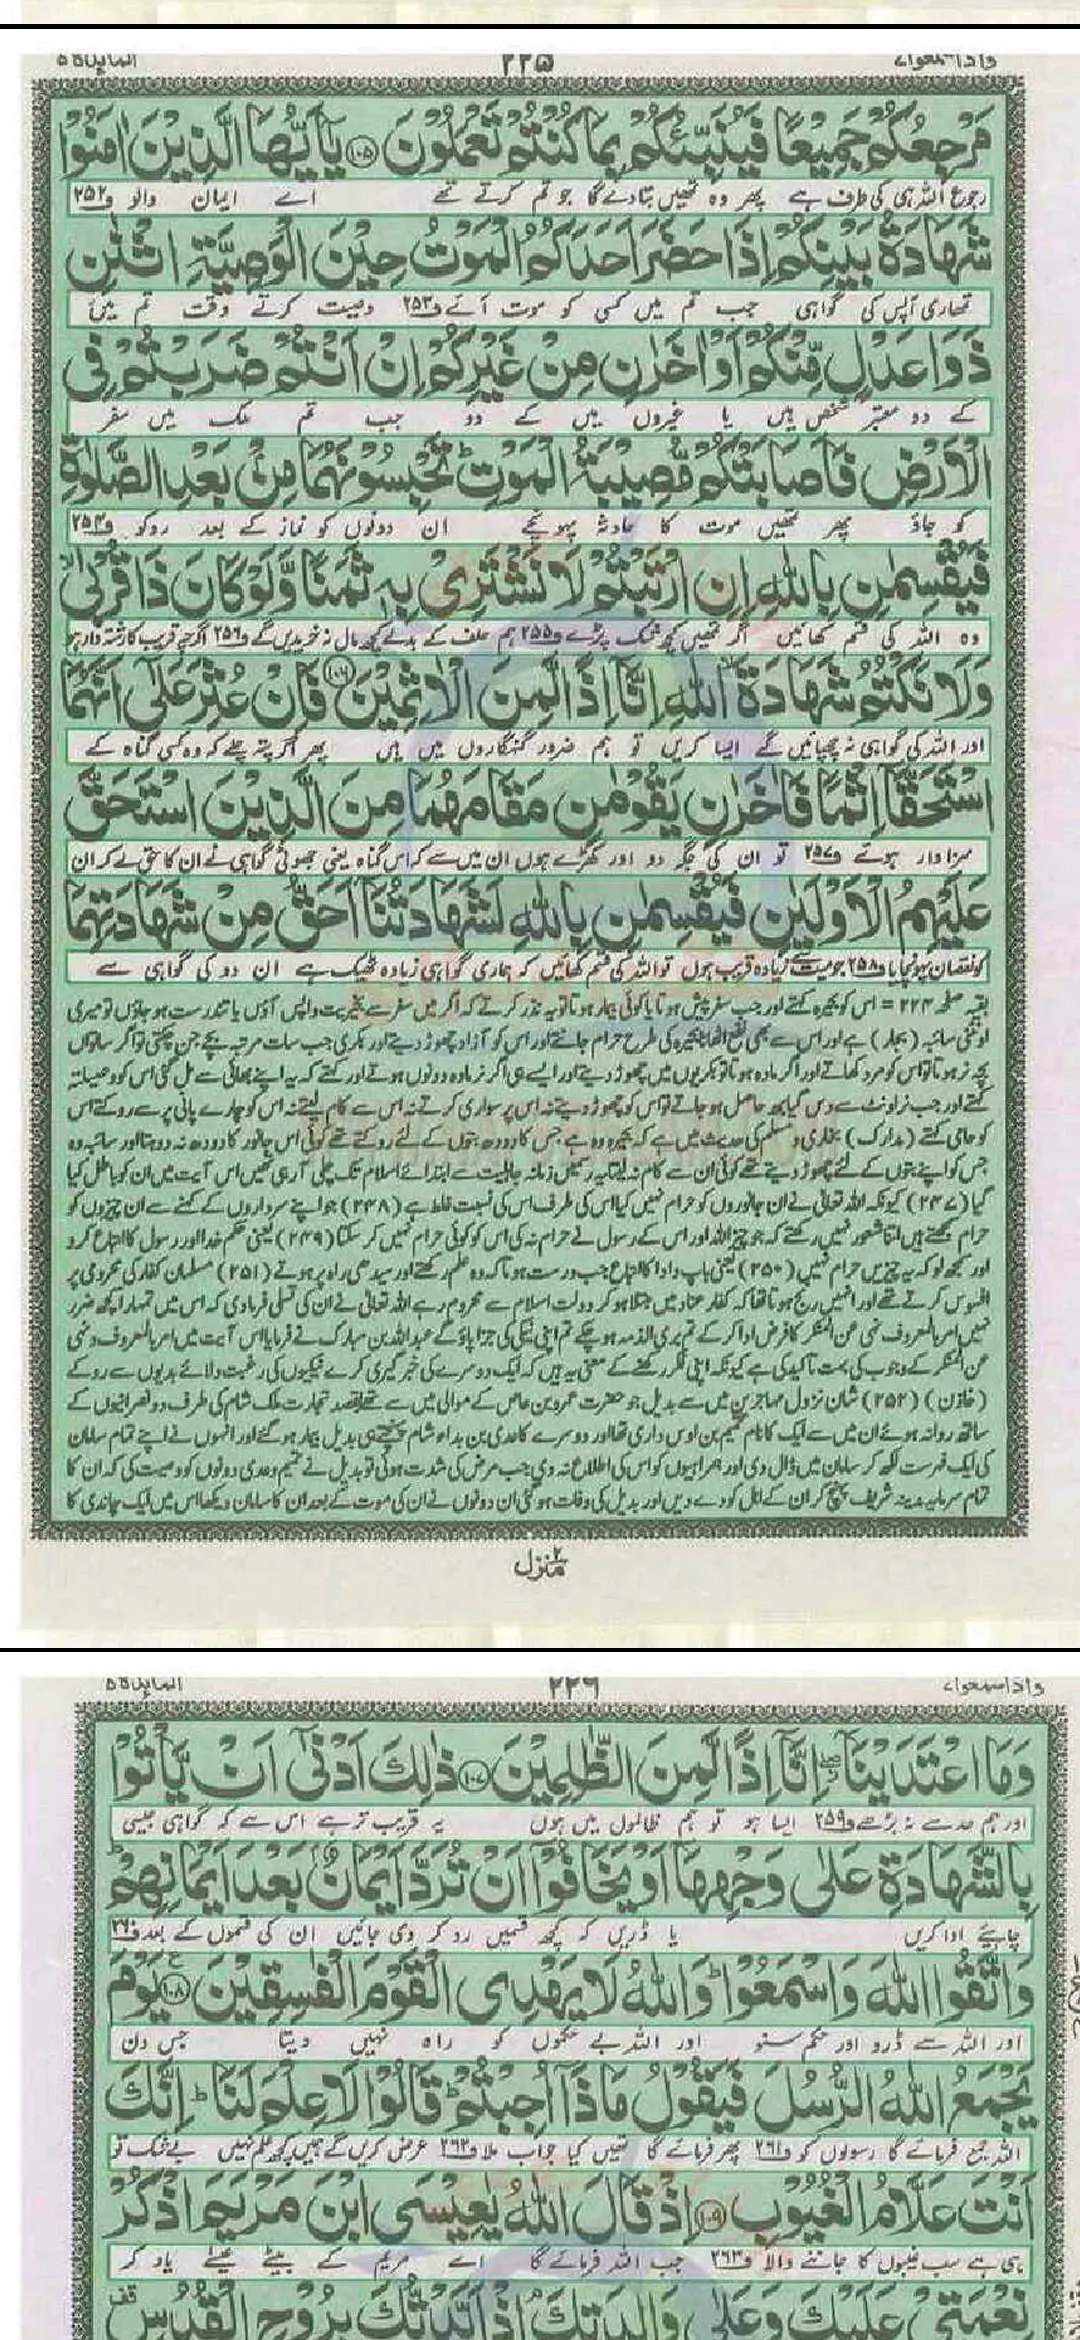 واذا سمعوا ۷ ۲۲۵ المآئدة ۵
مَرْجِعُكُمْ جَمِيْعًا فَيُنَبِّئُكُمْ بِمَا كُنْتُمْ تَعْمَلُوْنَ ﴿۱۰۵﴾ يٰۤاَيُّهَا الَّذِيْنَ اٰمَنُوْا
رجوع اللہ ہی کی طرف ہے پھر وہ تمہیں بتادے گا جو تم کرتے تھے اے ایمان والو ف۲۵۲
شَهَادَةُ بَيْنِكُمْ اِذَا حَضَرَ اَحَدَكُمُ الْمَوْتُ حِيْنَ الْوَصِيَّةِ اثْنٰنِ
تمہاری آپس کی گواہی جب تم میں کسی کو موت آئے ف۲۵۳ وصیت کرتے وقت تم میں
ذَوَا عَدْلٍ مِّنْكُمْ اَوْ اٰخَرٰنِ مِنْ غَيْرِكُمْ اِنْ اَنْتُمْ ضَرَبْتُمْ فِى
کے دو معتبر شخص ہیں یا غیروں میں کے دو جب تم ملک میں سفر
الْاَرْضِ فَاَصَابَتْكُمْ مُّصِيْبَةُ الْمَوْتِ ؕ تَحْبِسُوْنَهُمَا مِنْۢ بَعْدِ الصَّلٰوةِ
کو جاؤ پھر تمہیں موت کا حادثہ پہونچے ان دونوں کو نماز کے بعد روکو ف۲۵۴
فَيُقْسِمٰنِ بِاللّٰهِ اِنِ ارْتَبْتُمْ لَا نَشْتَرِىْ بِهٖ ثَمَنًا وَّلَوْ كَانَ ذَا قُرْبٰى ۙ
وہ اللہ کی قسم کھائیں اگر تمہیں کچھ شک پڑے ف۲۵۵ ہم حلف کے بدلے کچھ مال نہ خریدیں گے ف۲۵۶ اگرچہ قریب کا رشتہ دار ہو
وَلَا نَكْتُمُ شَهَادَةَ ۙ اللّٰهِ اِنَّاۤ اِذًا لَّمِنَ الْاٰثِمِيْنَ ﴿۱۰۶﴾ فَاِنْ عُثِرَ عَلٰۤى اَنَّهُمَا
اور اللہ کی گواہی نہ چھپائیں گے ایسا کریں تو ہم ضرور گنہگاروں میں ہیں پھر اگر پتہ چلے کہ وہ کسی گناہ کے
اسْتَحَقَّاۤ اِثْمًا فَاٰخَرٰنِ يَقُوْمٰنِ مَقَامَهُمَا مِنَ الَّذِيْنَ اسْتَحَقَّ
سزاوار ہوئے ف۲۵۷ تو ان کی جگہ دو اور کھڑے ہوں ان میں سے کہ اس گناہ یعنی جھوٹی گواہی نے ان کا حق لے کر ان
عَلَيْهِمُ الْاَوْلَيٰنِ فَيُقْسِمٰنِ بِاللّٰهِ لَشَهَادَتُنَاۤ اَحَقُّ مِنْ شَهَادَتِهِمَا
کو نقصان پہونچایا ف۲۵۸ جو میت سے زیادہ قریب ہوں تو اللہ کی قسم کھائیں کہ ہماری گواہی زیادہ ٹھیک ہے ان دو کی گواہی سے
بقیہ صفحہ ۲۲۴ = اس کو بحیرہ کہتے اور جب سفر پیش ہوتا یا کوئی بیمار ہوتا تو یہ نذر کرتے کہ اگر میں سفر سے بخیریت واپس آؤں یا تندرست ہو جاؤں تو میری
اونٹنی سائبہ (بجار) ہے اور اس سے بھی نفع اٹھانا بحیرہ کی طرح حرام جانتے اور اس کو آزاد چھوڑ دیتے اور بکری جب سات مرتبہ بچے جن چکتی تو اگر ساتواں
بچہ نر ہوتا تو اس کو مرد کھاتے اور اگر مادہ ہوتا تو بکریوں میں چھوڑ دیتے اور ایسے ہی اگر نر مادہ دونوں ہوتے اور کہتے کہ یہ اپنے بھائی سے مل گئی اس کو وصیلہ
کہتے اور جب نر اونٹ سے دس گیابھ حاصل ہو جاتے تو اس کو چھوڑ دیتے نہ اس پر سواری کرتے نہ اس سے کام لیتے نہ اس کو چارے پانی پر سے روکتے اس
کو حامی کہتے (مدارک) بخاری و مسلم کی حدیث میں ہے کہ بحیرہ وہ ہے جس کا دودھ بتوں کے لئے روکتے تھے کوئی اس جانور کا دودھ نہ دوہتا اور سائبہ وہ
جس کو اپنے بتوں کے لئے چھوڑ دیتے تھے کوئی ان سے کام نہ لیتا یہ رسمیں زمانہ جاہلیت سے ابتدائے اسلام تک چلی آ رہی تھیں اس آیت میں ان کو باطل کیا
گیا (۲۴۷) کیونکہ اللہ تعالیٰ نے ان جانوروں کو حرام نہیں کیا اس کی طرف اس کی نسبت غلط ہے (۲۴۸) جو اپنے سرداروں کے کہنے سے ان چیزوں کو
حرام سمجھتے ہیں اتنا شعور نہیں رکھتے کہ جو چیز اللہ اور اس کے رسول نے حرام نہ کی اس کو کوئی حرام نہیں کر سکتا (۲۴۹) یعنی حکم خدا اور رسول کا اتباع کرو
اور سمجھ لو کہ یہ چیزیں حرام نہیں (۲۵۰) یعنی باپ دادا کا اتباع جب درست ہوتا کہ وہ علم رکھتے اور سیدھی راہ پر ہوتے (۲۵۱) مسلمان کفار کی محرومی پر
افسوس کرتے تھے اور انہیں رنج ہوتا تھا کہ کفار عناد میں مبتلا ہو کر دولت اسلام سے محروم رہے اللہ تعالیٰ نے ان کی تسلی فرمادی کہ اس میں تمہارا کچھ ضرر
نہیں امر بالمعروف نہی عن المنکر کا فرض ادا کر کے تم بری الذمہ ہو چکے تم اپنی نیکی کی جزا پاؤ گے عبداللہ بن مبارک نے فرمایا اس آیت میں امر بالمعروف و نہی
عن المنکر کے وجوب کی بہت تاکید کی ہے کیونکہ اپنی فکر رکھنے کے معنی یہ ہیں کہ ایک دوسرے کی خبر گیری کرے نیکیوں کی رغبت دلائے بدیوں سے روکے
(خازن) (۲۵۲) شان نزول مہاجرین میں سے بدیل جو حضرت عمرو بن عاص کے موالی میں سے تھے بقصد تجارت ملک شام کی طرف دو نصرانیوں کے
ساتھ روانہ ہوئے ان میں سے ایک کا نام تمیم بن اوس داری تھا اور دوسرے کا عدی بن بداء شام پہنچتے ہی بدیل بیمار ہو گئے اور انہوں نے اپنے تمام سامان
کی ایک فہرست لکھ کر سامان میں ڈال دی اور ہمراہیوں کو اس کی اطلاع نہ دی جب مرض کی شدت ہوئی تو بدیل نے تمیم و عدی دونوں کو وصیت کی کہ ان کا
تمام سرمایہ مدینہ شریف پہنچ کر ان کے اہل کو دے دیں اور بدیل کی وفات ہو گئی ان دونوں نے ان کی موت کے بعد ان کا سامان دیکھا اس میں ایک چاندی کا
منزل ۲
واذا سمعوا ۷ ۲۲۶ المآئدة ۵
وَمَا اعْتَدَيْنَاۤ ۖ اِنَّاۤ اِذًا لَّمِنَ الظّٰلِمِيْنَ ﴿۱۰۷﴾ ذٰلِكَ اَدْنٰۤى اَنْ يَّاْتُوْا
اور ہم حد سے نہ بڑھے ف۲۵۹ ایسا ہو تو ہم ظالموں میں ہوں یہ قریب تر ہے اس سے کہ گواہی جیسی
بِالشَّهَادَةِ عَلٰى وَجْهِهَاۤ اَوْ يَخَافُوْۤا اَنْ تُرَدَّ اَيْمَانٌۢ بَعْدَ اَيْمَانِهِمْ ؕ
چاہیئے ادا کریں یا ڈریں کہ کچھ قسمیں رد کر دی جائیں ان کی قسموں کے بعد ف۲۶۰
وَاتَّقُوا اللّٰهَ وَاسْمَعُوْا ؕ وَاللّٰهُ لَا يَهْدِى الْقَوْمَ الْفٰسِقِيْنَ ﴿۱۰۸﴾ يَوْمَ
اور اللہ سے ڈرو اور حکم سنو اور اللہ بے حکموں کو راہ نہیں دیتا جس دن
يَجْمَعُ اللّٰهُ الرُّسُلَ فَيَقُوْلُ مَاذَاۤ اُجِبْتُمْ ؕ قَالُوْا لَا عِلْمَ لَنَا ؕ اِنَّكَ
اللہ جمع فرمائے گا رسولوں کو ف۲۶۱ پھر فرمائے گا تمہیں کیا جواب ملا ف۲۶۲ عرض کریں گے ہمیں کچھ علم نہیں بے شک تو
اَنْتَ عَلَّامُ الْغُيُوْبِ ﴿۱۰۹﴾ اِذْ قَالَ اللّٰهُ يٰعِيْسَى ابْنَ مَرْيَمَ اذْكُرْ
ہی ہے سب غیبوں کا جاننے والا ف۲۶۳ جب اللہ فرمائے گا اے مریم کے بیٹے عیسٰے یاد کر
نِعْمَتِىْ عَلَيْكَ وَعَلٰى وَالِدَتِكَ ۘ اِذْ اَيَّدْتُّكَ بِرُوْحِ الْقُدُسِ